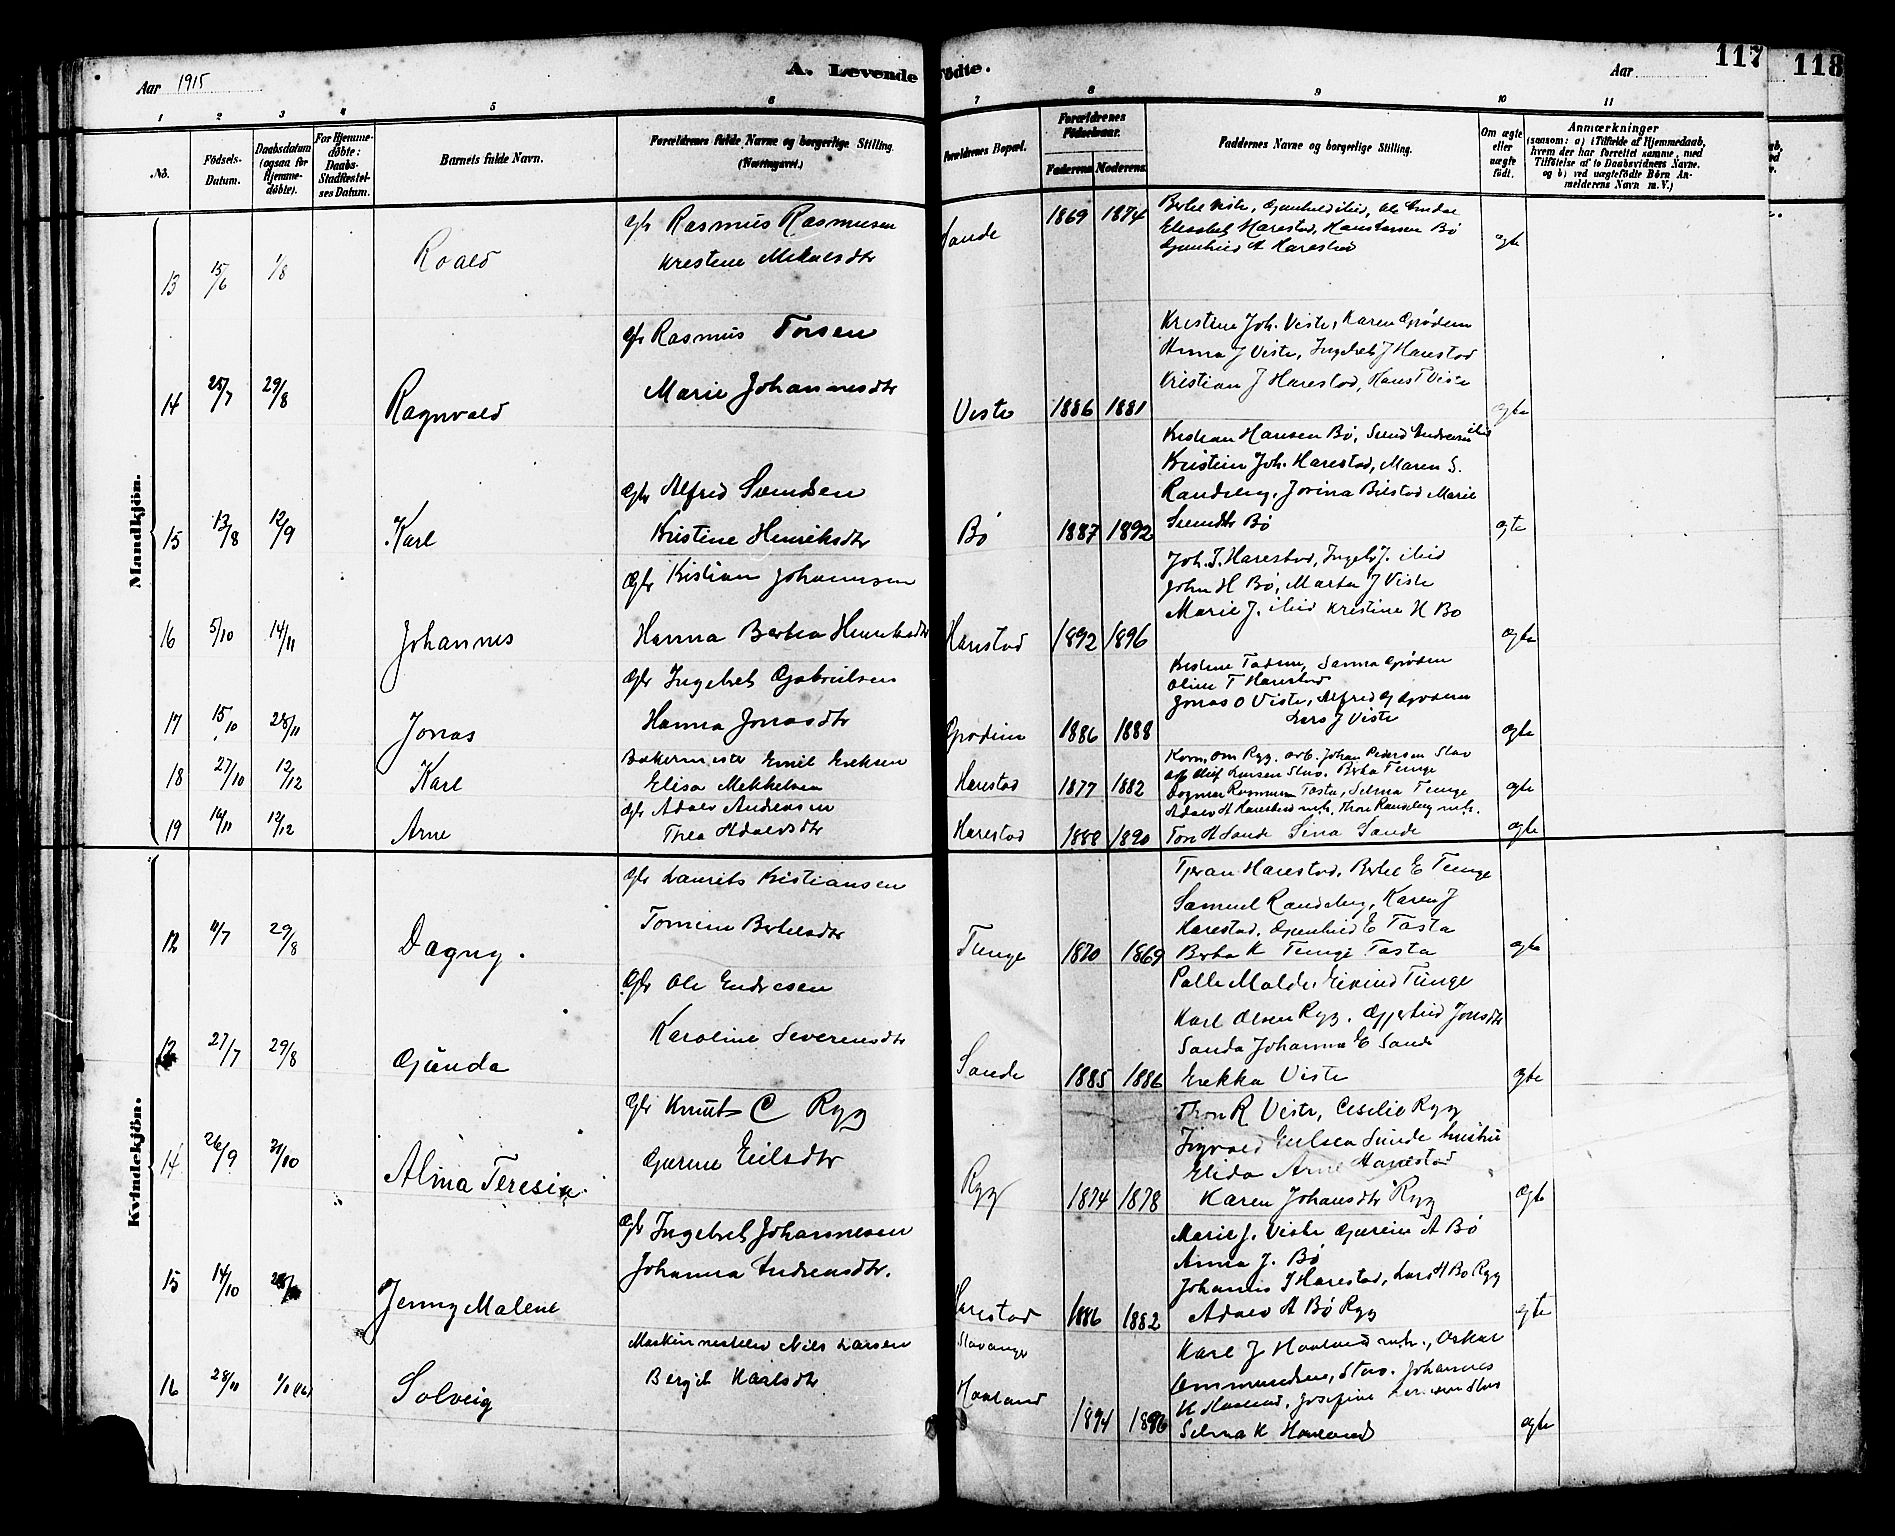 Aar 1915
A. Levende Födte.
Aar
117
118
1 2 3 4 5 6 7 8 9 10 11
No.
Födsels-Datum.
Daabsdatum (ogsaa for Hjemme-döbte).
For Hjemme-döbte: Daabs-Stadfæstel-ses Datum.
Barnets fulde Navn.
Forældrenes fulde Navne og borgerlige Stilling. (Næringsvei.)
Forældrenes Bopæl.
Forældrenes Födselsaar.
Faderens Moderens
Faddernes Navne og borgerlige Stilling.
Om ægte eller uægte født.
Anmærkninger
(saasom: a) i Tilfælde af Hjemmedaab, hvem der har forrettet samme, med Tilföielse af to Daabsvidners Navne. og b) ved uægtefödte Börn An-melderens Navn m. V.)
Mandkjön.
13 15/6 1/8 Roald
Gbr Rasmus Rasmussen
Kristine Mikalsdtr
Sande 1869 1874
Elisabet Harestad, Hans Larsen Bø
Gunhild A Harestad
ægte
14 25/7 29/8 Ragnvald
Gbr Rasmus Torsen
Marie Johannesdtr
Viste 1886 1881
Kristine Joh. Viste, Karen Grødem
Anna J Viste, Ingebret J Harestad
Kristian J Harestad, Hans T Viste
ægte
15 13/8 12/9 Karl
Gbr Alfred Svendsen
Kristine Henriksdtr
Bø 1887 1892
Kristian Hansen Bø, Svend Andersen ibid
Kristine Joh. Harestad, Maren S.
Randeberg, Jorina Bilstad Marie
Svendsdtr Bø
ægte
16 5/10 14/11 Johannes
Gbr Kristian Johannesen
Hanna Berta Henriksdtr
Harestad 1892 1896
Joh. I. Harestad, Ingeb. J. ibid
John H Bø, Marta J Viste
Marie J. ibid Kristine H Bø
ægte
17 15/10 28/11 Jonas
Gbr Ingebret Gabrielsen
Hanna Jonasdtr
Grødem 1886 1888
Oline T Harestad
Jonas O Viste, Alfred G Grødem
Lars J Viste
ægte
18 27/10 12/12 Karl
Bakermester Emil Eriksen
Elisa Mikkelsen
Harestad 1877 1882
Korn. Om Rygg. arb. Johan Pedersen Stav
arb Oluf Larsen Stav. Berta Tunge
Dagmar Rasmussen Tasta, Selma Tunge
ægte
19 14/11 12/12 Arne
Gbr Adolv Andreassen
Thea Adolvsdtr
Harestad 1888 1890
Adolv A Harestad m.h. Thore Randeberg m.h.
Tore A Sande Sina Sande
ægte
Kvindekjön.
12 11/7 29/8 Dagny.
Gbr Laurits Kristiansen
Tomine Bertelsdtr
Tunge 1870 1869
Tjeran Harestad, Bertel E Tunge
Samuel Randeberg, Karen J
Harestad, Gunhild E Tasta
Berta K Tunge Tasta
ægte
13 27/7 29/8 Gunda
Gbr Ole Endresen
Karoline Severinsdtr
Sande 1885 1886
Palle Malde, Eivind Tunge
Karl Olsen Rygg. Gjertrud Jonsdtr
Sande Johanna E Sande
Erekka Viste
ægte
14 26/9 31/10 Alma Teresia
Gbr Knut C Rygg
Gurine Eilsdtr
Rygg 1874 1878
Thore R Viste, Cesilie Rygg
Sigvald Eielsen Sunde hustru
Elida Arne Harestad
Karen Johansdtr Rygg
ægte
15 14/10 28/11 Jenny Malene
Gbr Ingebret Johannesen
Johanna Andreasdtr.
Harestad 1886 1882
Marie J. Viste Gurine A Bø
Anna J. Bø
Johannes I Harestad, Lars H Bø Rygg
Adolv A Bø Rygg
ægte
16 28/11 1/1 (16) Solveig
Maskinmester Nils Larsen
Bergit Karlsdtr
Stavanger
Haaland 1894 1896
Karl J Haaland m.h., Oskar
Ommundsen, Stav. Johannes
K Haaland, Josefine Larsen Stav
Selma K Haaland
ægte